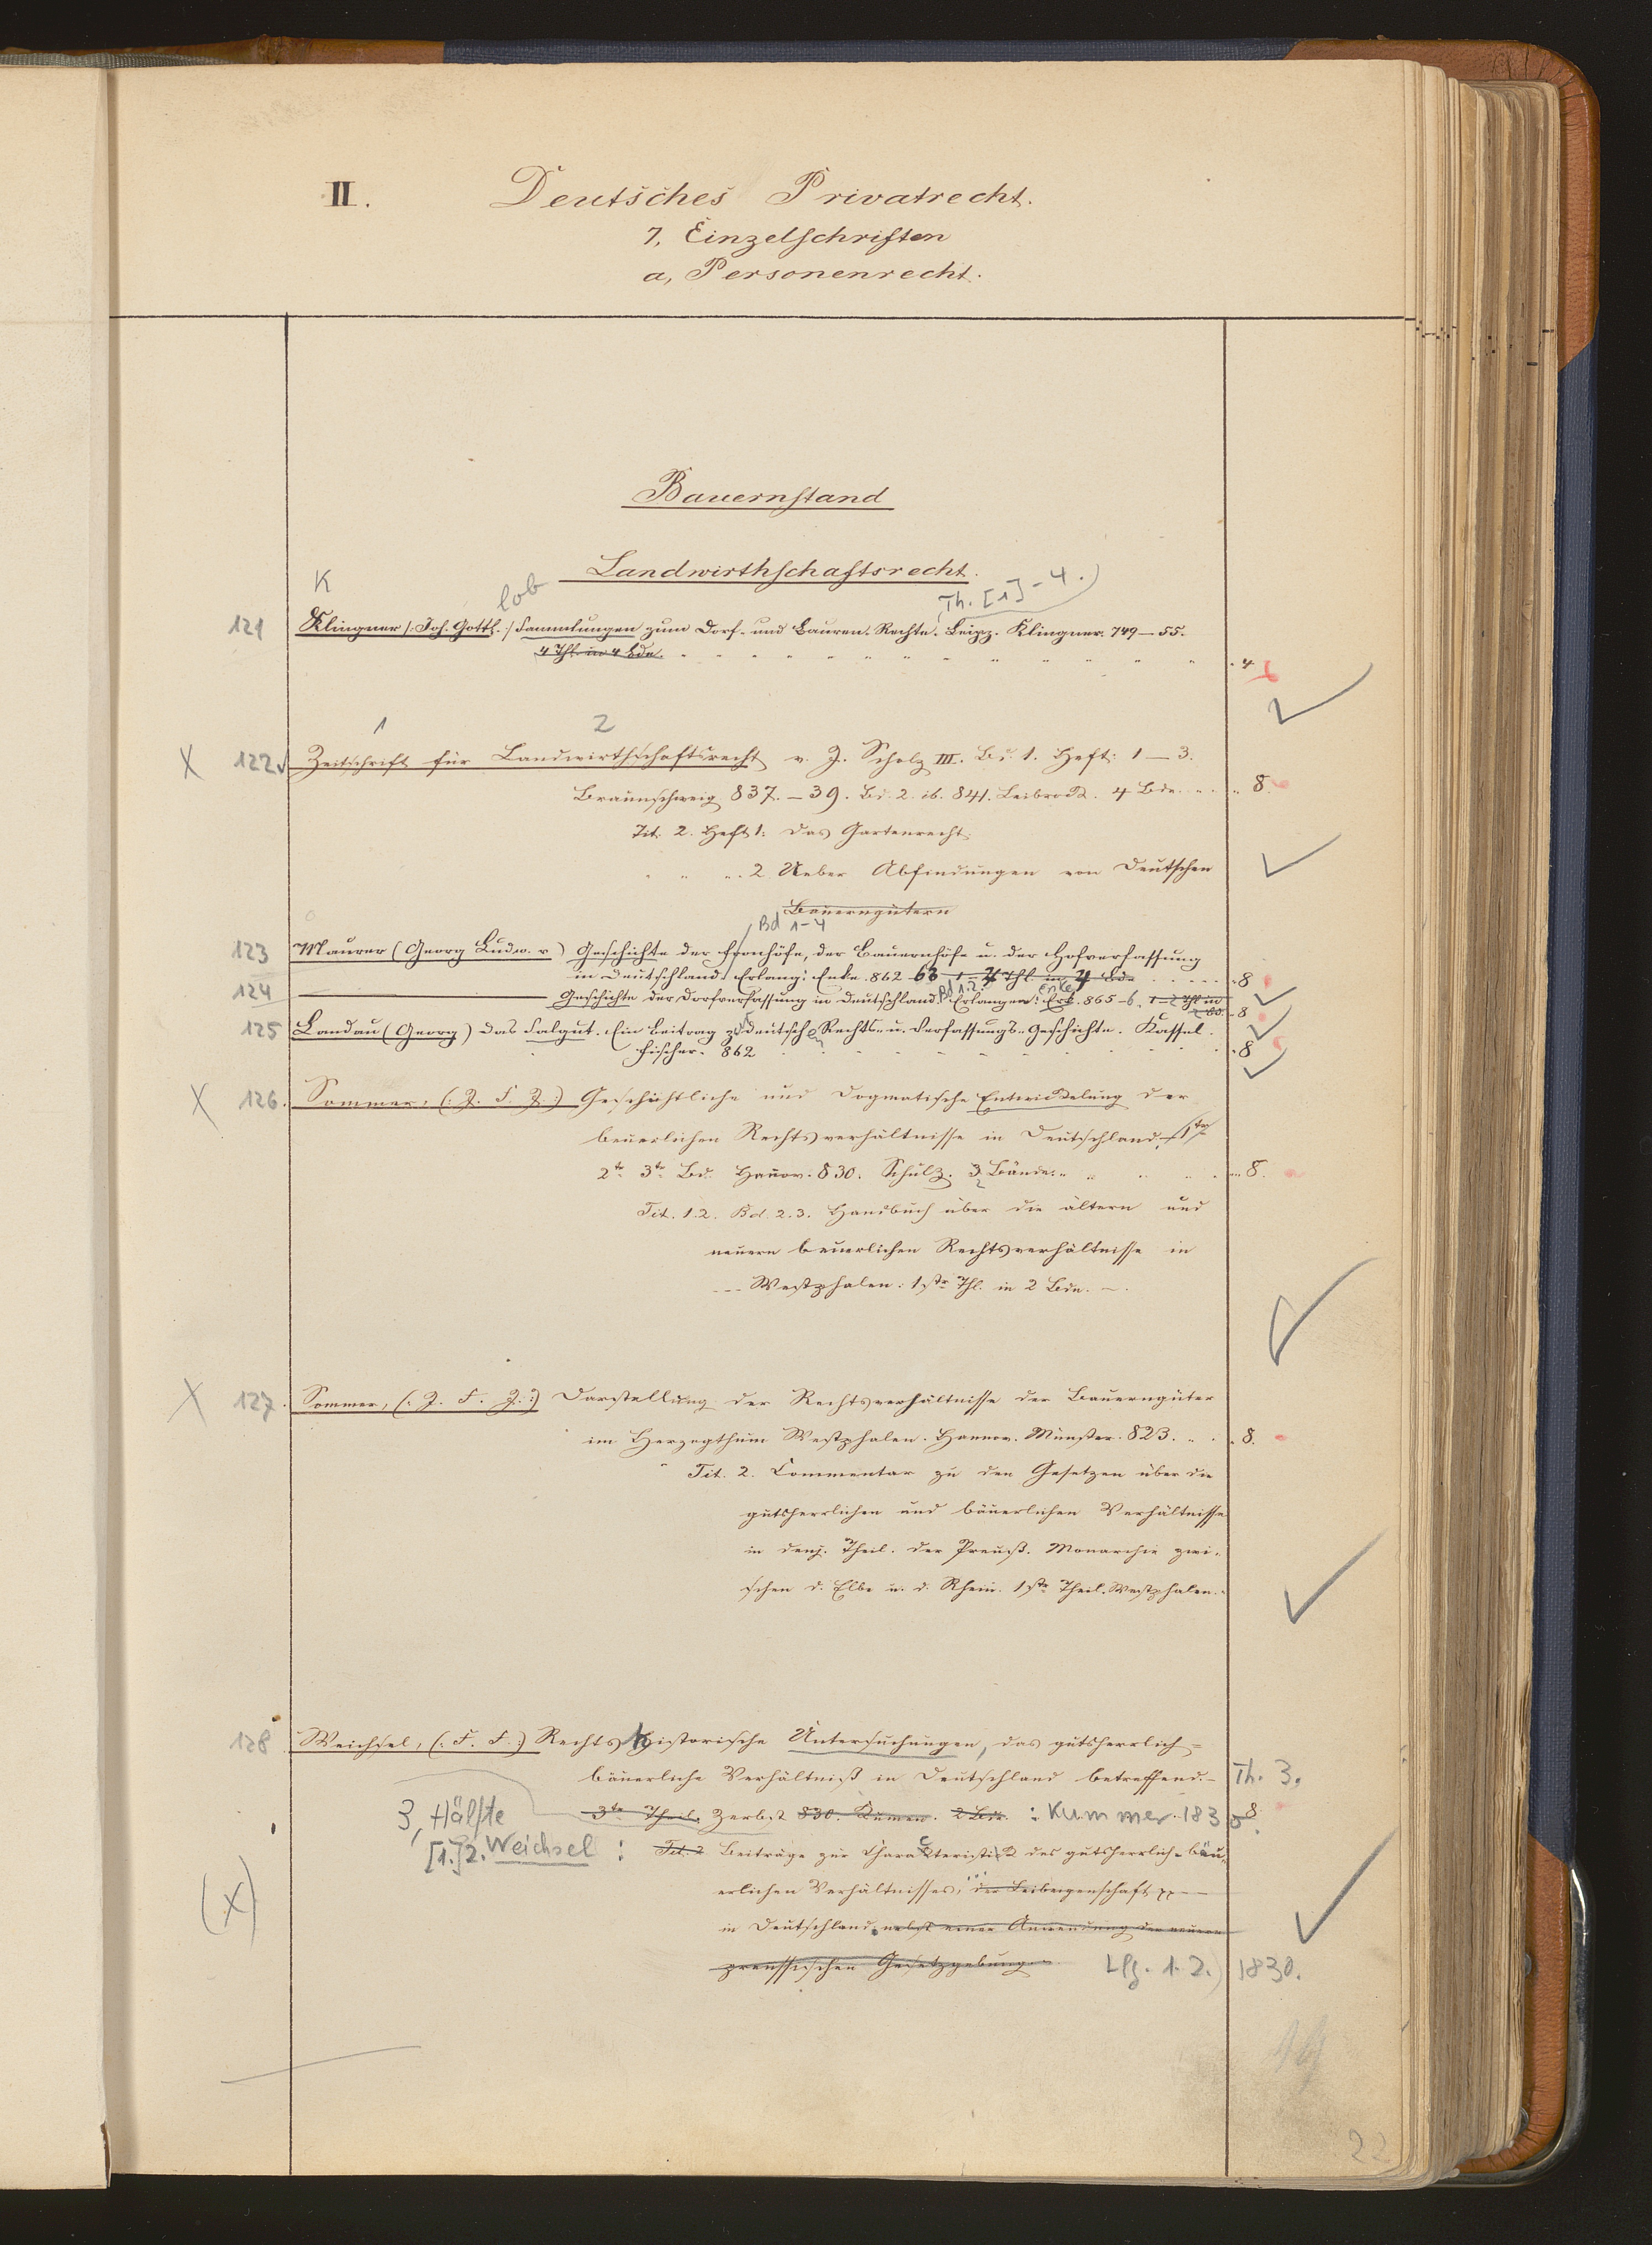 II. Deutsches Privatrecht.
7, Einzelschriften
a, Personenrecht.
Bauernstand
Landwirthschaftsrecht.
K lob Th. [1]-4.)
121 Klingner /: Joh. Gottl. :/ Sammlungen zum Dorf- und Bauren-Rechte. Leipz. Klingner. 749–55.
4 Thl. in 4 Bde. 4
1 2
X 122 Zeitschrift für Landwirthschaftsrecht v. J. Scholz III. Bd. 1. Heft: 1–3.
Braunschweig 837.–39. Bd. 2. ib. 841. Leibrock. 4 Bde. 8.
Tit. 2. Heft 1: Das Gartenrecht.
" " 2 Ueber Abfindungen von Deutschen
Bauerngütern
Bd 1-4
123 Maurer (Georg Ludw. v) Geschichte der Fronhöfe, der Bauernhöfe u. der Hofverfassung
in Deutschland. Erlang: Enke. 862-63 1–4 Thl. in 4 Bde. 8
Bd 1.2. Enke
124 Geschichte der Dorfverfassung in Deutschland. Erlangen: Erk. 865–6. 1–2 Thl in
2 Bd. 8
125 Landau (Georg) Das Salgut. Ein Beitrag z. deutschen Rechts- u. Verfassungs-Geschichte. Kassel.
Fischer. 862 8
X 126. Sommer, (: J. F. J. :) Geschichtliche und Dogmatische Entwickelung der
beuerlichen Rechtsverhältnisse in Deutschland. 1te
2te 3te Bd. Hanov. 830. Schulz. 3 Bände. 8.
Tit. 1.2. Bd. 2.3. Handbuch über die ältern und
neuern beuerlichen Rechtsverhältnisse in
Westphalen. 1ste Thl. in 2 Bdn.
X 127. Sommer, (: J. F. J. :) Darstellung der Rechtsverhältnisse der Bauerngüter
im Herzogthum Westphalen. Hannov. Münster. 823. 8.
Tit. 2. Commentar zu den Gesetzen über die
gutsherrlichen und bäuerlichen Verhältnisse
in denj. Theil. der Preuß. Monarchie zwi-
schen d. Elbe u. d. Rhein. 1ste Theil. Westphalen.
128 Weichsel, (: F. F. :) Rechtshistorische Untersuchungen, das gutsherrlich=
bäuerliche Verhältniß in Deutschland betreffend.– Th. 3.
3, Hälfte 3te Theil. Zerbst 830. Kumen. 2 Bde. : Kummer. 1830. 8
[1.]2. Weichsel : Tit. 2 Beiträge zur Charakteristick des gutsherrlich-bäu-
(X) erlichen Verhältnisses, der Leibeigenschaft pp
in Deutschland nebst einer Anwendung der neuern
preussischen Gesetzgebung. Lfg. 1.2.) 1830.
22